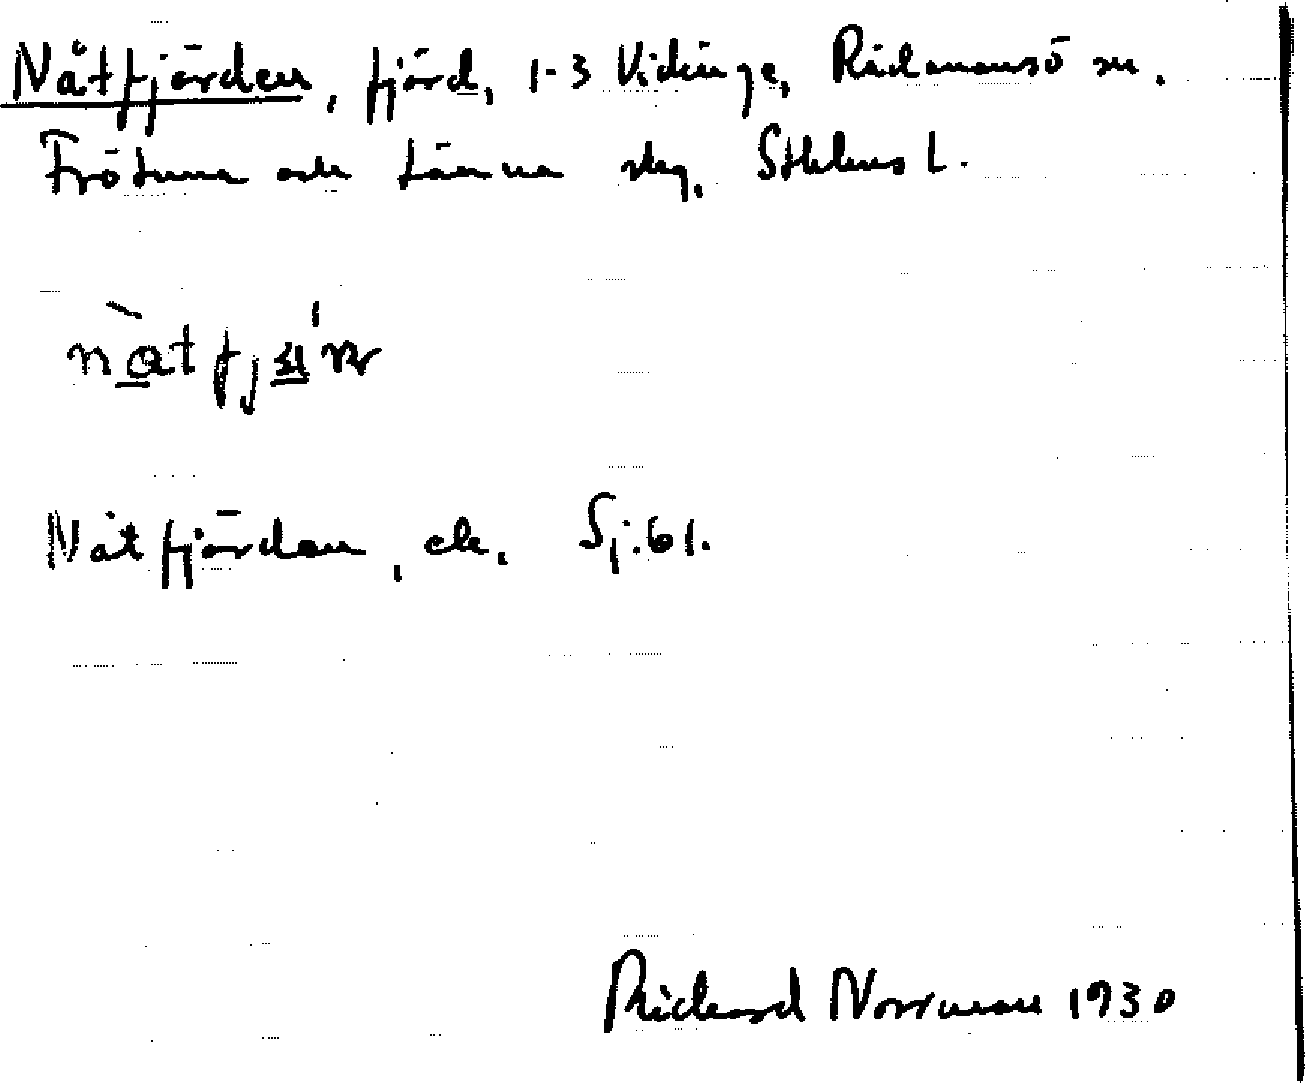 Nåtfjärden, fjärd, 1-3 Vidinge, Rådmansö sn.
Frötuna och Länna skg, Sthlms l.
Nåtfjärden, ek. Sj. 61.
Richard Norrman 1930